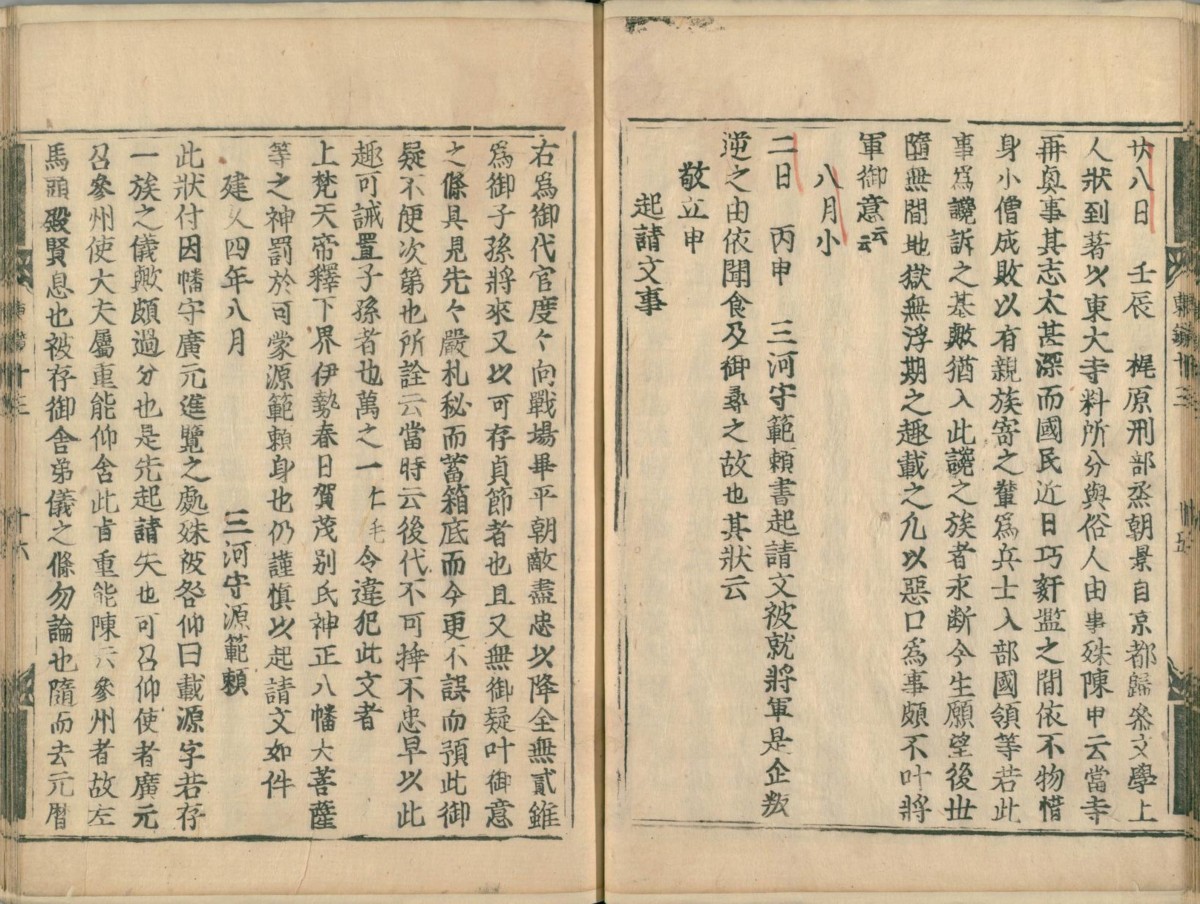 廿八日　壬辰　梶原刑部烝朝景自京都歸叅文學上
人狀到著以東大寺料所分與俗人由事殊陳申云當寺
再奐事其志太甚深而國民近日巧姧濫之間依不物惜
身小僧成敗以有親族寄之輩爲兵士入部國領等若此
事爲讒訴之基歟猶入此讒之族者永断今生願望後世
隨無間地獄無浮期之趣載之凡以惡口爲事頗不叶將
軍御意云云
八月小
二日　丙申　三河守範頼書起請文被就將軍是企叛
逆之由依聞食及御尋之故也其狀云
敬立申
起請文事
右爲御代官度々向戰場畢平朝敵盡忠以降全無貳雖
爲御子孫將來又以可存貞節者也且又無御疑叶御意
之條具見先々嚴札秘而蓄箱底而今更不誤而預此御
疑不便次第也所詮云當時云後代不可挿不忠早以此
趣可誡置子孫者也萬之一仁毛令違犯此文者
上梵天帝釋下界伊勢春日賀茂别氏神正八幡大菩薩
等之神罰於可蒙源範頼身也仍謹慎以起請文如件
建久四年八月　三河守源範頼
此狀付因幡守廣元進覽之處殊被咎仰曰載源字若存
一族之儀歟頗過分也是先起請失也可召仰使者廣元
召參州使大夫屬重能仰含此旨重能陳云參州者故左
馬頭殿賢息也被存御舎弟儀之條勿論也隨而去元暦
東鑑十三
十六
東鑑十三
十五